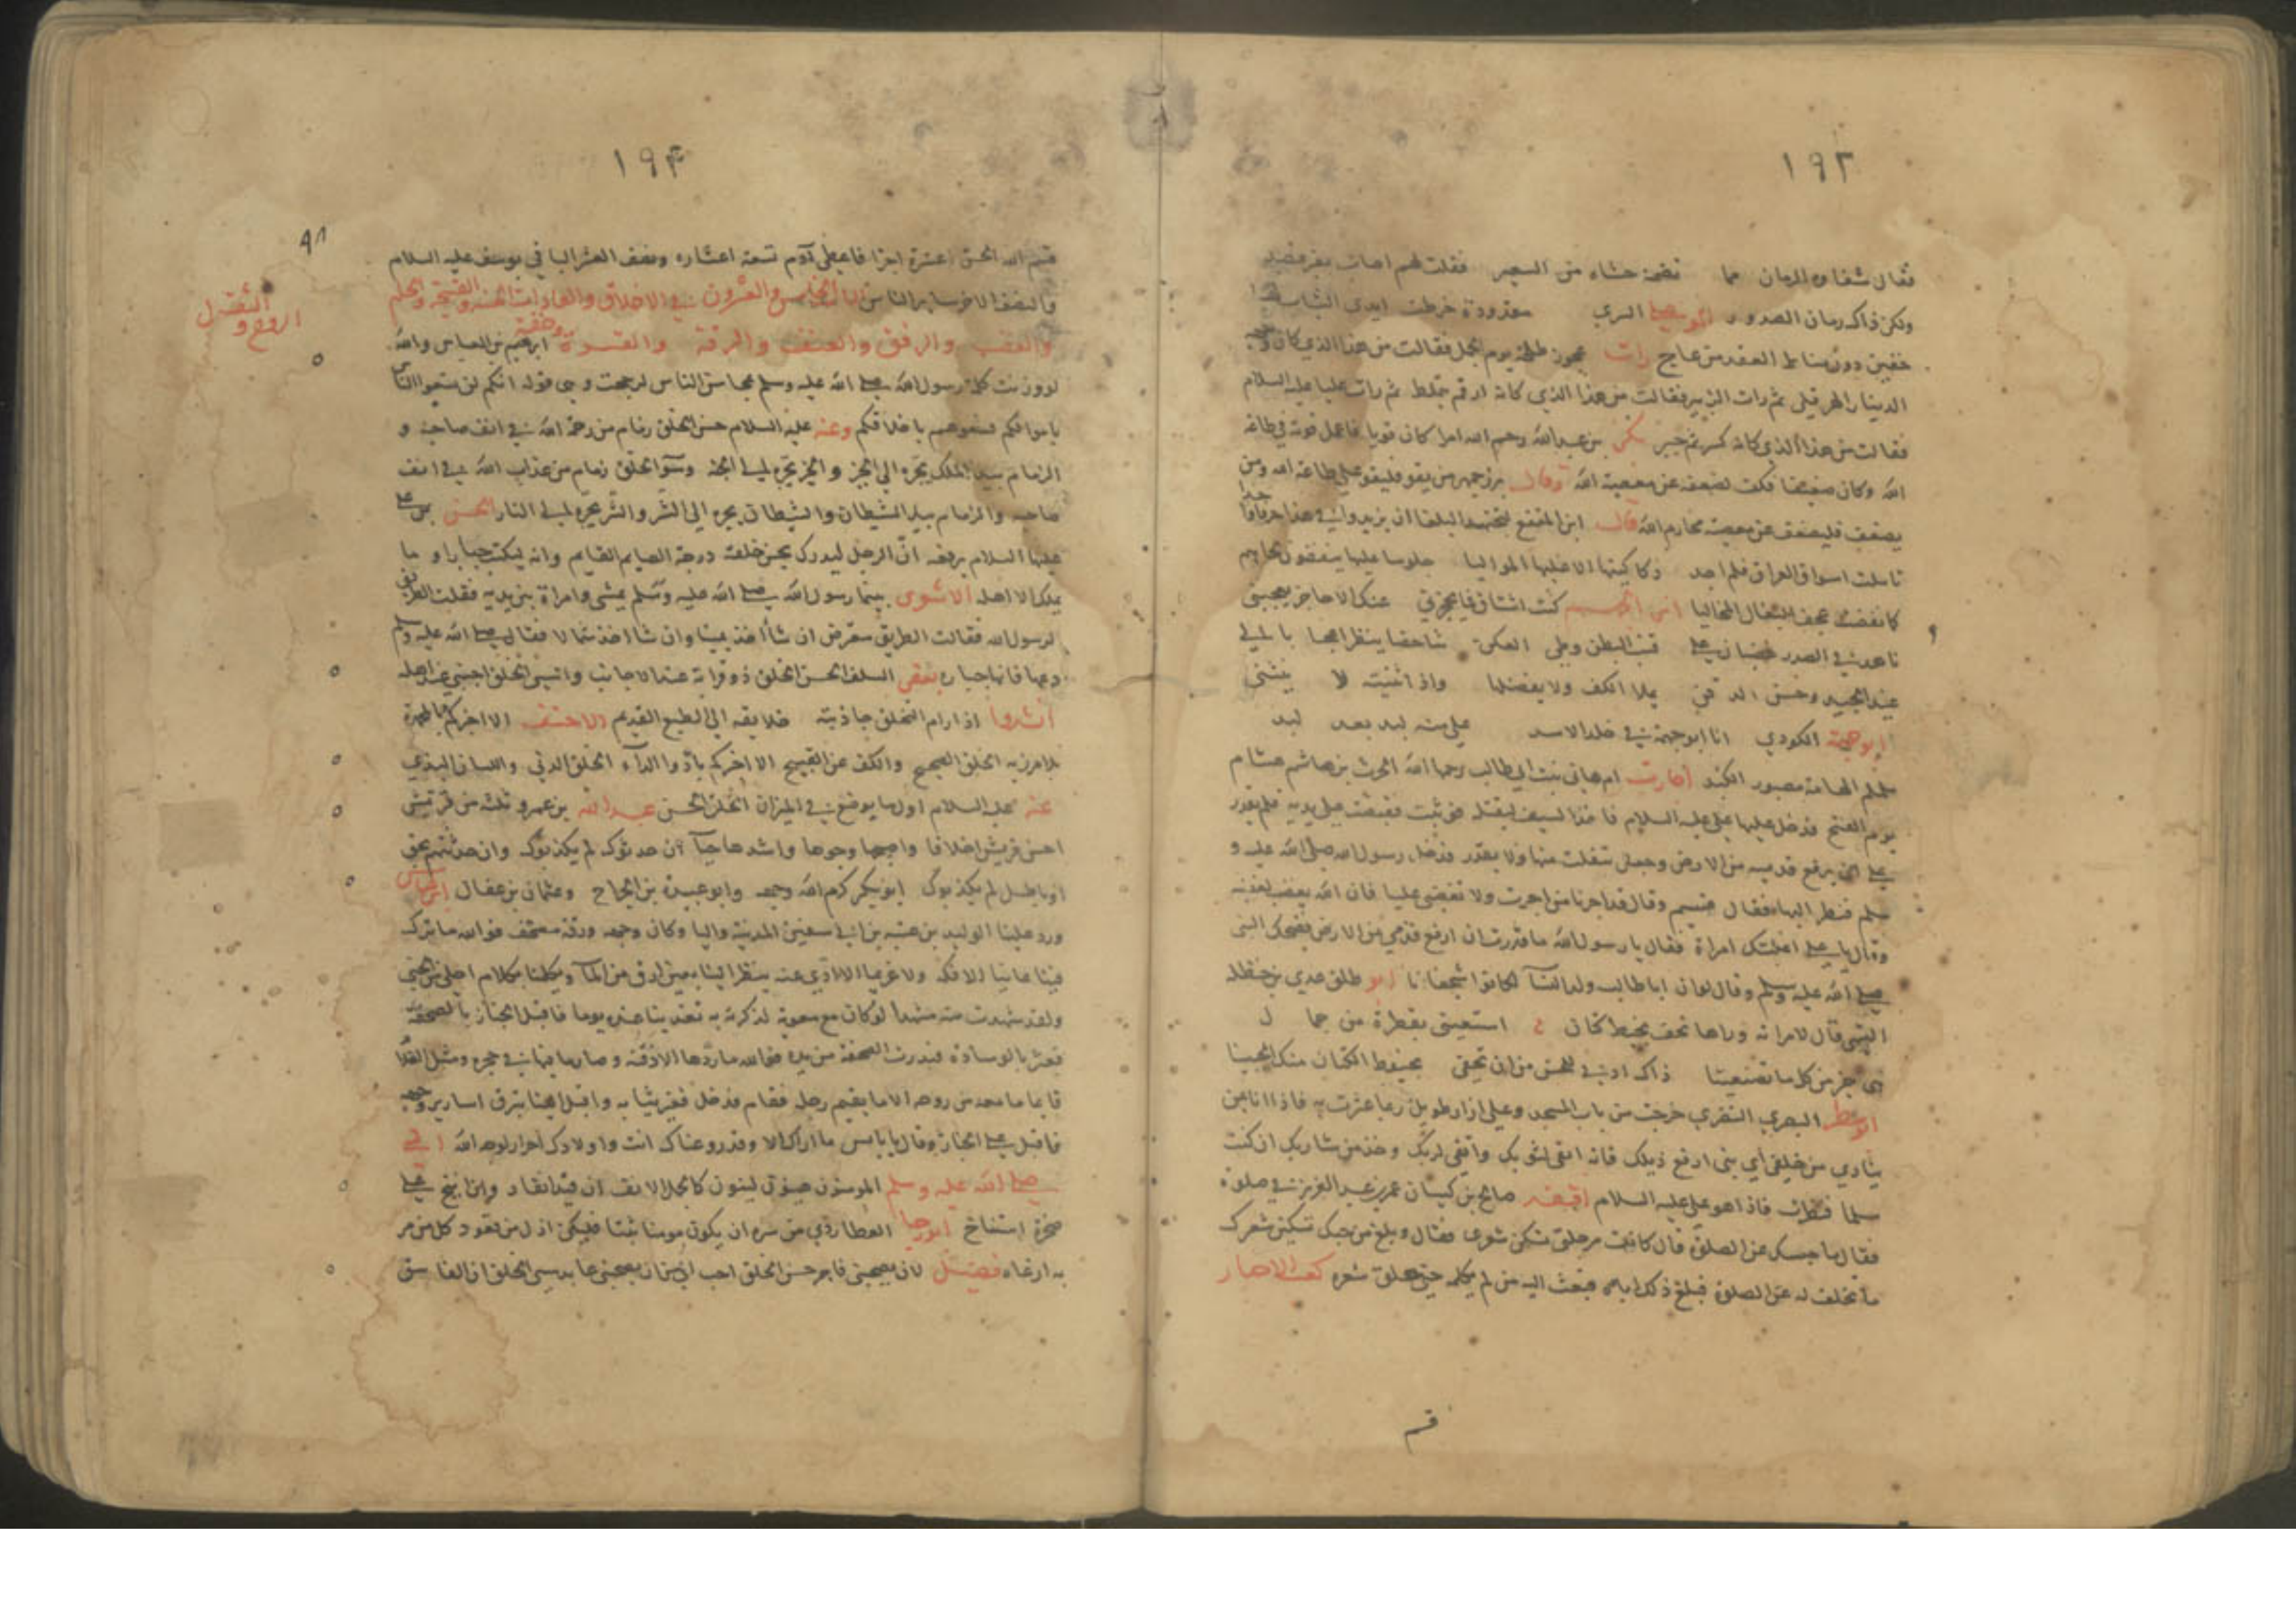 ١٩٣
فقال شفاوه الرمان مما تضمنه حشاء من السعير فقلت لهم اصاب بغير قصد
ولكن ذاك رمان الصدور السري مقدودة خرطت ايدي الشباب لها
حقين دون مناط العقد من عاج رات عجوز طلحة يوم الجمل فقالت من هذا الذي كان وجهه
الدينار الهرقلي ثم رات الزبير فقالت من هذا الذي كانه ارقم يتلمظ ثم رات عليا عليه السلام
فقالت من هذا الذي كانه كسر ثم جبر بكر بن عبد الله رحم الله امرا كان قويا فاعمل قوته في طاعة
الله وكان ضعيفا فكف لضعفه عن معصية الله وقال بزرجمهر من يقو فليقو على طاعة الله ومن
يضعف فليضعف عن معصية محارم الله قال ابن المقفع ليجتهد البلغا ان يزيدوا في هذا حرفا
تاملت اسواق العراق فلم اجد دكاكينها الا عليها المواليا جلوسا عليها ينفضون لحاهم
كما نفضت عجف البغال المخاليا كنت اشتاق فما يحجزني عنك الا حاجز يعجبني
ناهد في الصدر غضبان على قبب البطن وطي العكن شاخصا ينظر اعجابا الى
غيد الجيد وحسن الذقن يملا الكف ولا يفضلها واذا اثنيته لا ينثني
الكودي انا ابو جهمة في جلد الاسد علي منه لبد بعد لبد
اجارت ام هاني بنت ابي طالب رحمها الله الحرث بن هاشم هشام
يوم الفتح فدخل عليها علي عليه السلام فاخذ السيف ليقتله فوثبت فقبضت على يديه فلم يقدر
على ان يرفع قدميه من الارض وجعل يتفلت منها ولا يقدر فدخل رسول الله صلى الله عليه و
سلم فنظر اليها فقال فتبسم وقال قد اجرنا من اجرت ولا تغضبي عليا فان الله يغضب لغضبه
وقال يا علي اغلبتك امراة فقال يا رسول الله ما قدرت ان ارفع قدمي من الارض فضحك النبي
صلى الله عليه وسلم وقال لو ان ابا طالب ولد الناس لكانوا شجعانا ابو طلق عدي بن حنظلة
التيمي قال لامراته وراها تحف بخيط كتان استعيني بقطرة من جمال
هي خير من كل ما تصنعينا ذاك ادنى للحسن من ان تحفي بخيوط الكتان منك الجبينا
البصري النضري خرجت من باب المسجد وعلي ازار طويل ربما عثرت به فاذا انا بمن
ينادي من خلفي اي بني ارفع ذيلك فانه انقى لثوبك واتقى لربك وخذ من شاربك ان كنت
مسلما فنظرت فاذا هو علي عليه السلام صالح بن كيسان عمر بن عبد العزيز في صلوة
فقال ما حبسك عن الصلوة قال كانت مرجلتي تسكن شعري فقال وبلغ من حبك تسكين شعرك
ما تخلف له عن الصلوة فبلغ ذلك اباه فبعث اليه من لم يكلمه حتى حلق شعره كعب الاحبار
قسم
١٩٤
٩٨
قسم الله الحسن عشرة اجزا فاعطى آدم تسعة اعشاره ونصف العشر الباقي يوسف عليه السلام
والنصف الاخر ساير الناس الباب الخامس والعشرون في الاخلاق والعادات الحسنة والقبيحة والحلم
والغضب والرفق والعنف والرقة والقسوة وخفة ابرهيم بن العباس والله
الروح و الثقل
لو وزنت كلمة رسول الله صلى الله عليه وسلم بمحاسن الناس لرجحت وهي قوله انكم لن تسعوا الناس
باموالكم فسعوهم باخلاقكم وعنه عليه السلام حسن الخلق زمام من رحمة الله في انف صاحبه و
الزمام بيد الملك يجره الى الخير والخير يجره الى الجنة وسوء الخلق زمام من عذاب الله في انف
صاحبه والزمام بيد الشيطان والشيطان يجره الى الشر والشر يجره الى النار الحسن بن علي
عليهما السلام يرفعه ان الرجل ليدرك بحسن خلقه درجة الصايم القايم وانه ليكتب جبارا و ما
يملك الا اهله الاشعري بينما رسول الله صلى الله عليه وسلم يمشي وامراة بين يديه فقلت الطريق
لرسول الله فقالت الطريق معترض ان شا اخذ يمينا وان شا اخذ شمالا فقال صلى الله عليه وسلم
دعوها فانها جبارة بعض السلف الحسن الخلق ذو قرابة عند الاجانب والسيئ الخلق اجنبي عند اهله
انشدوا اذا رام التخلق جاذبته خلايقه الى الطبع القديم الاحنف الا اخبركم بالمحمدة
بلا مرزية الخلق السجيح والكف عن القبيح الا اخبركم بادوا الداء الخلق الدني واللسان البذي
عنه عليه السلام اول ما يوضع في الميزان الخلق الحسن عبد الله بن عمرو ثلثة من قريش
احسن قريش اخلاقا واصبحها وجوها واشدها حياء ان حدثوك لم يكذبوك وان حدثتهم بحق
او باطل لم يكذبوك ابو بكر كرم الله وجهه وابو عبيدة بن الجراح وعثمان بن عفان
ورد علينا الوليد بن عتبة بن ابي سفين المدينة واليا وكان وجهه ورقة مصحف فوالله ما ترك
فينا عانيا الا فكه ولا غريما الا ادى عنه ينظر الينا بعين ارق من الماء ويكلمنا بكلام احلى من الجنى
ولقد شهدت منه مشهدا لو كان مع معوية لذكرته به تغدينا عنده يوما فاقبل الخباز بالصحفة
فعثر بالوسادة فندرت الصحفة من يده فوالله ما ردها الا ذقنه وصار ما فيها في حجره ومثل الغلام
قايما ما معه من روحه الا ما يقيم رجله فقام فدخل فغير ثيابه واقبل الينا تبرق اسارير وجهه
فاقبل على الخباز وقال يا بايس ما ارانا الا وقد روعناك انت واولادك احرار لوجه الله
صلى الله عليه وسلم المومنون هينون لينون كالجمل الانف ان قيد انقاد وان انيخ على
صخرة استناخ ابو رجا العطاردي من سره ان يكون مومنا حقا فليكن اذل من قعود كل من مر
به ارغاه فضيل لان يصحبني فاجر حسن الخلق احب الي من ان يصحبني عابد سيئ الخلق ان الفاسق